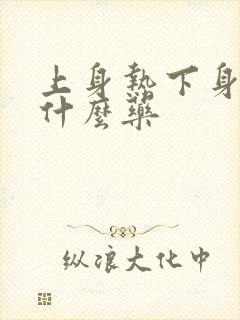 上身熱下身
什麼藥
纵浪大化中